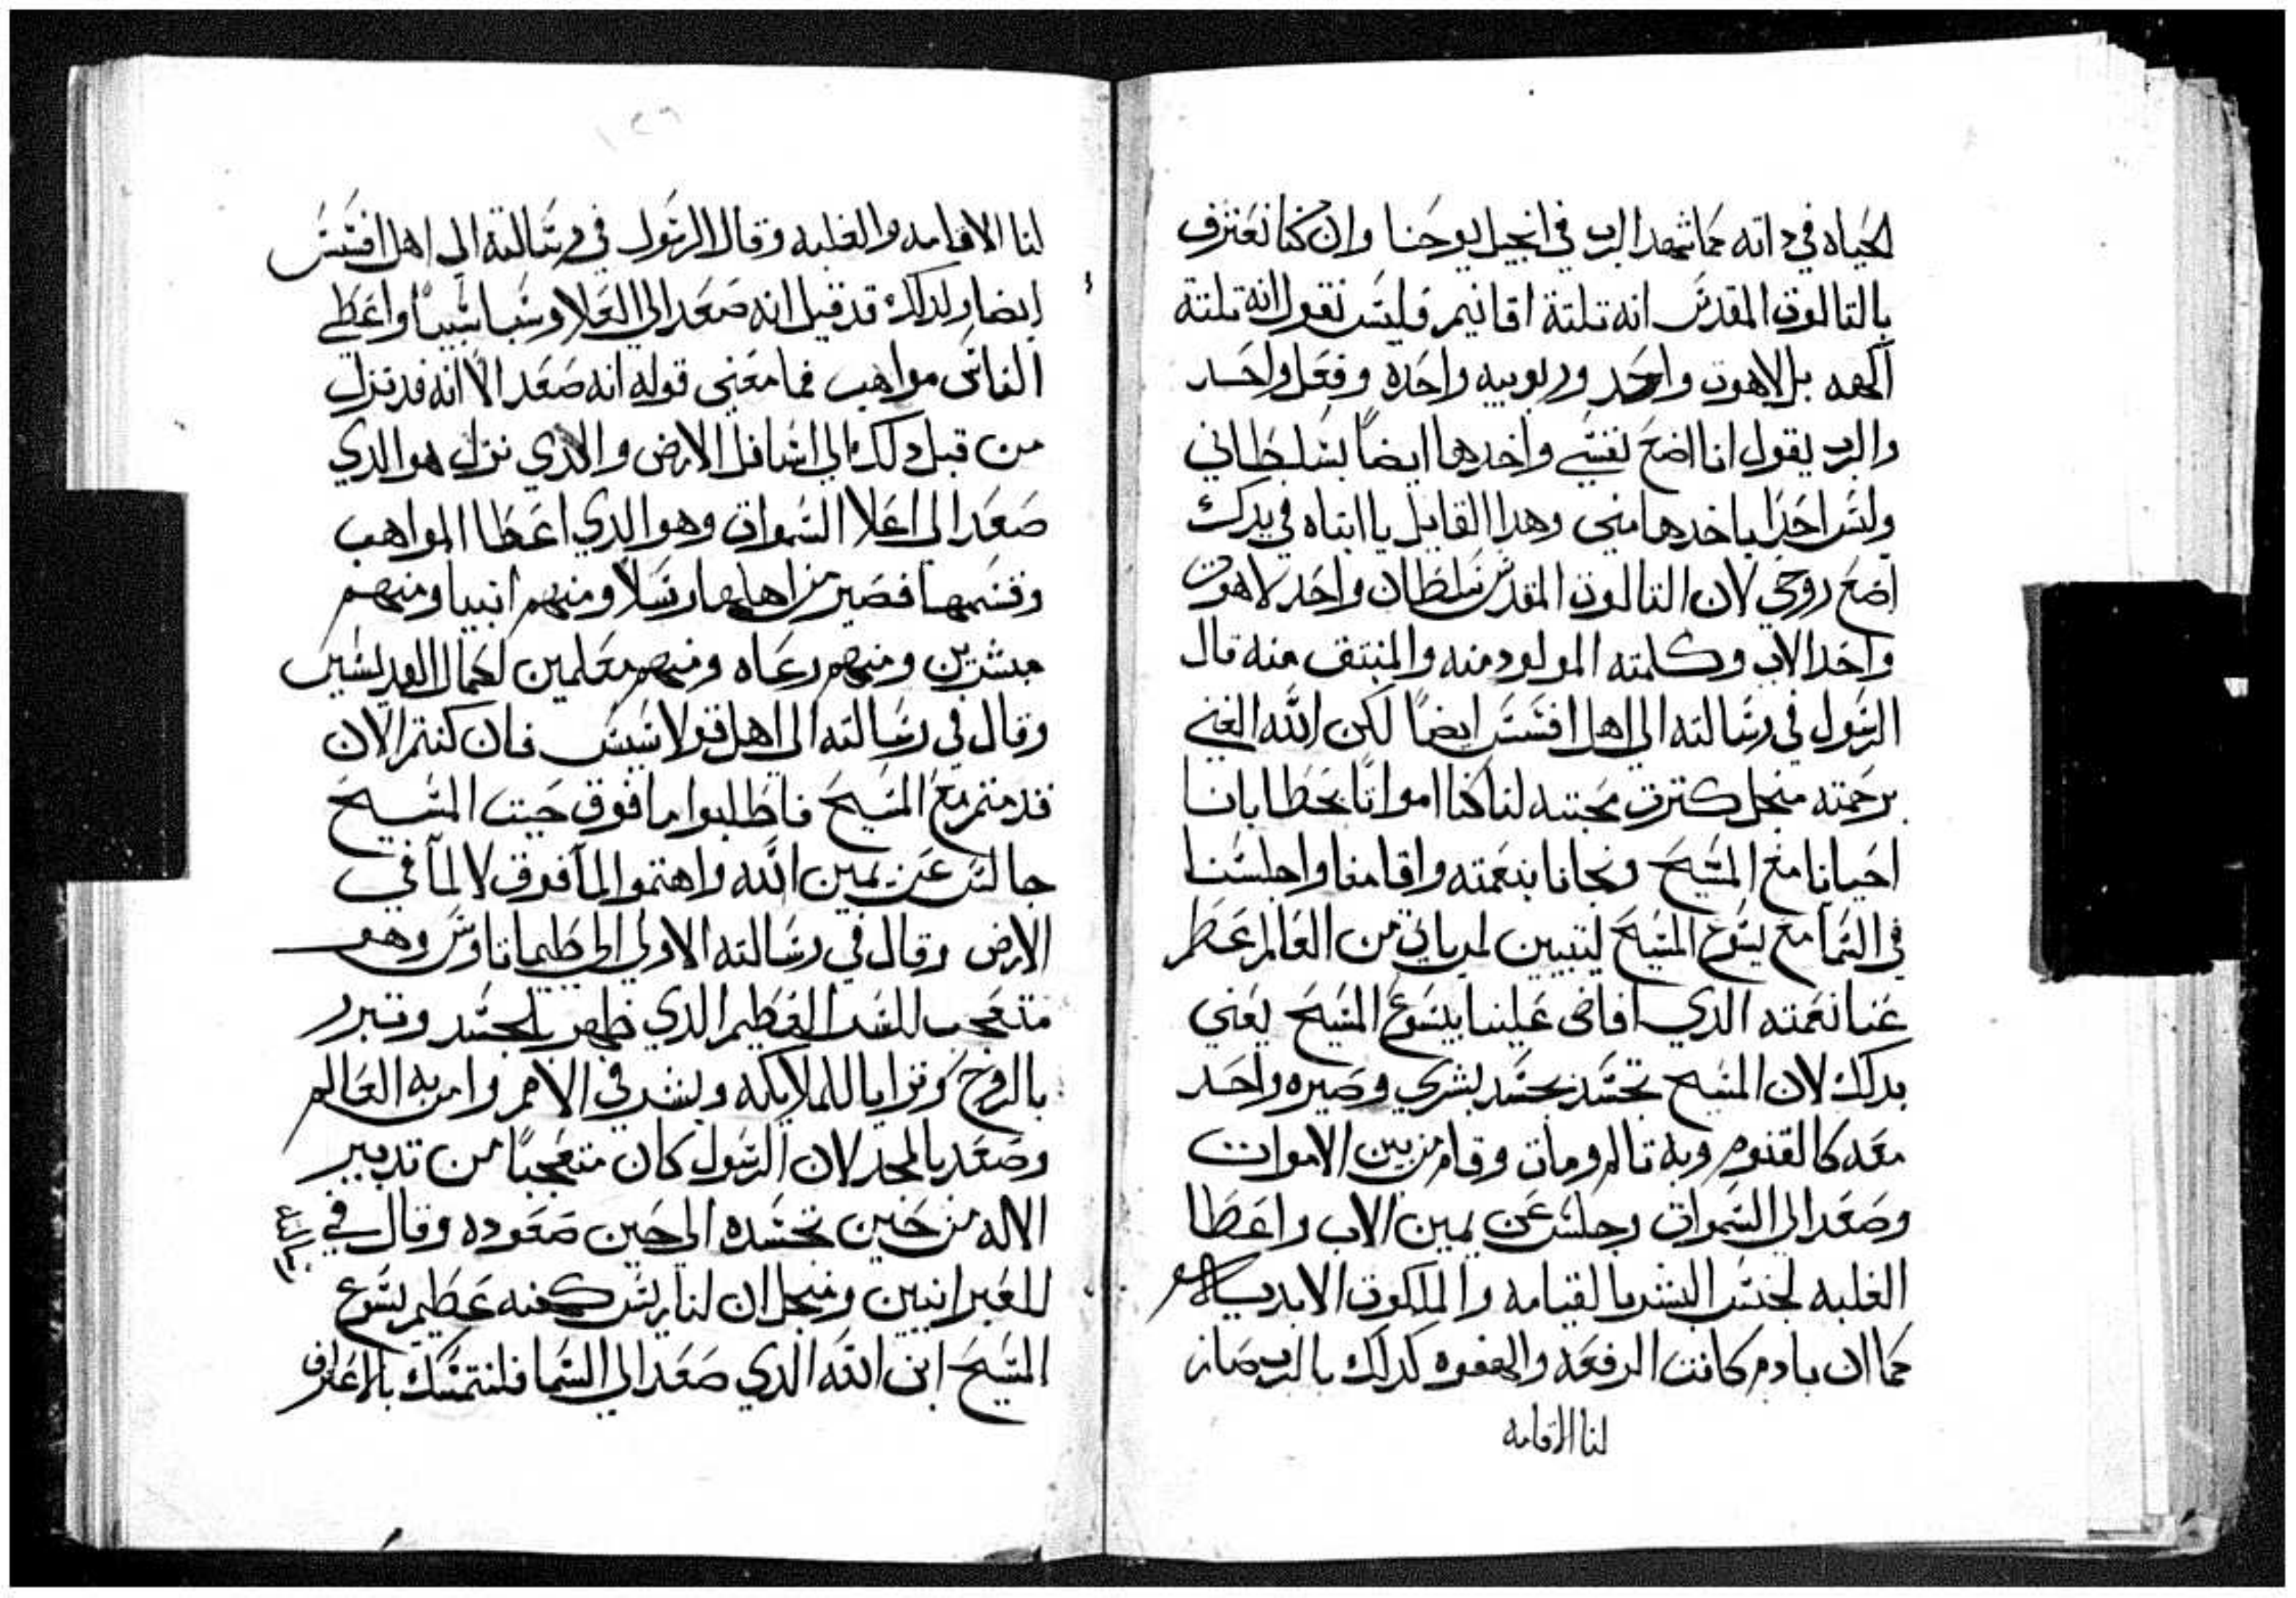 الحياه في داته كما شهد الرب في انجيل يوحنا وان كنا نعترف
بالتالوت المقدس انه تلتة اقانيم فليس نقول انه تلتة
الهه بل لاهوت واحد وربوبيه واحده وفعل واحد
والرب يقول انا اضع نفسي واخدها ايضاً بسلطاني
وليس احداً ياخدها مني وهدا القايل يا ابتاه في يدك
اضع روحي لان التالوت المقدس سلطان واحد لاهوت
واحد الاب وكلمته المولود منه والمنبتق منه قال
الرسول في رسالته الي اهل افسس ايضاً لكن الله الغني
برحمته منجل كترت محبته لنا كنا امواتاً بخطايانا
احيانا مع المسيح ونجانا بنعمته واقامنا واجلسنا
في السما مع يسوع المسيح ليتبين لمن ياتي من العالم عظم
غنا نعمته الدي افاض علينا بيسوع المسيح يعني
بدلك لان المسيح تجسد بجسد بشري وصيره واحد
معه كالقنوم وبه تالم ومات وقام من بين الاموات
وصعد الي السموات وجلس عن يمين الاب واعطا
الغلبه لجنس البشر بالقيامه والملكوت الابديه
كما ان بادم كانت الرفعه والهفوه كدلك بالرب صار
لنا الاقامه
لنا الاقامه والغلبه وقال الرسول في رسالته الي اهل افسس
ايضا ولدلك قد قيل انه صعد الي العلا وسبا سبياً واعطي
الناس مواهب فما معني قوله انه صعد الا انه قد نزل
من قبل دلك الي اسافل الارض والدي نزل هو الدي
صعد الي اعلا السموات وهو الدي اعطا المواهب
وقسمها فصير من اهلها رسلاً ومنهم انبيا ومنهم
مبشرين ومنهم رعاه ومنهم معلمين لكمال القديسين
وقال في رسالته الي اهل قولاسيس فان كنتم الان
قد متم مع المسيح فاطلبوا ما فوق حيت المسيح
جالس عن يمين الله واهتموا لما فوق لا لما في
الارض وقال في رسالته الاولي الي طيماتاوس وهو
متعجب للسر العظيم الدي ظهر بالجسد وتبرر
بالروح وتزايا للملايكه وبشر في الامم وامن به العالم
وصعد بالمجد لان الرسول كان متعجباً من تدبير
الاله من حين تجسده الي حين صعوده وقال في
للعبرانيين ومنجل ان لنا ريس كهنه عظيم يسوع
المسيح ابن الله الدي صعد الي السما فلنتمسك بالاعتراف